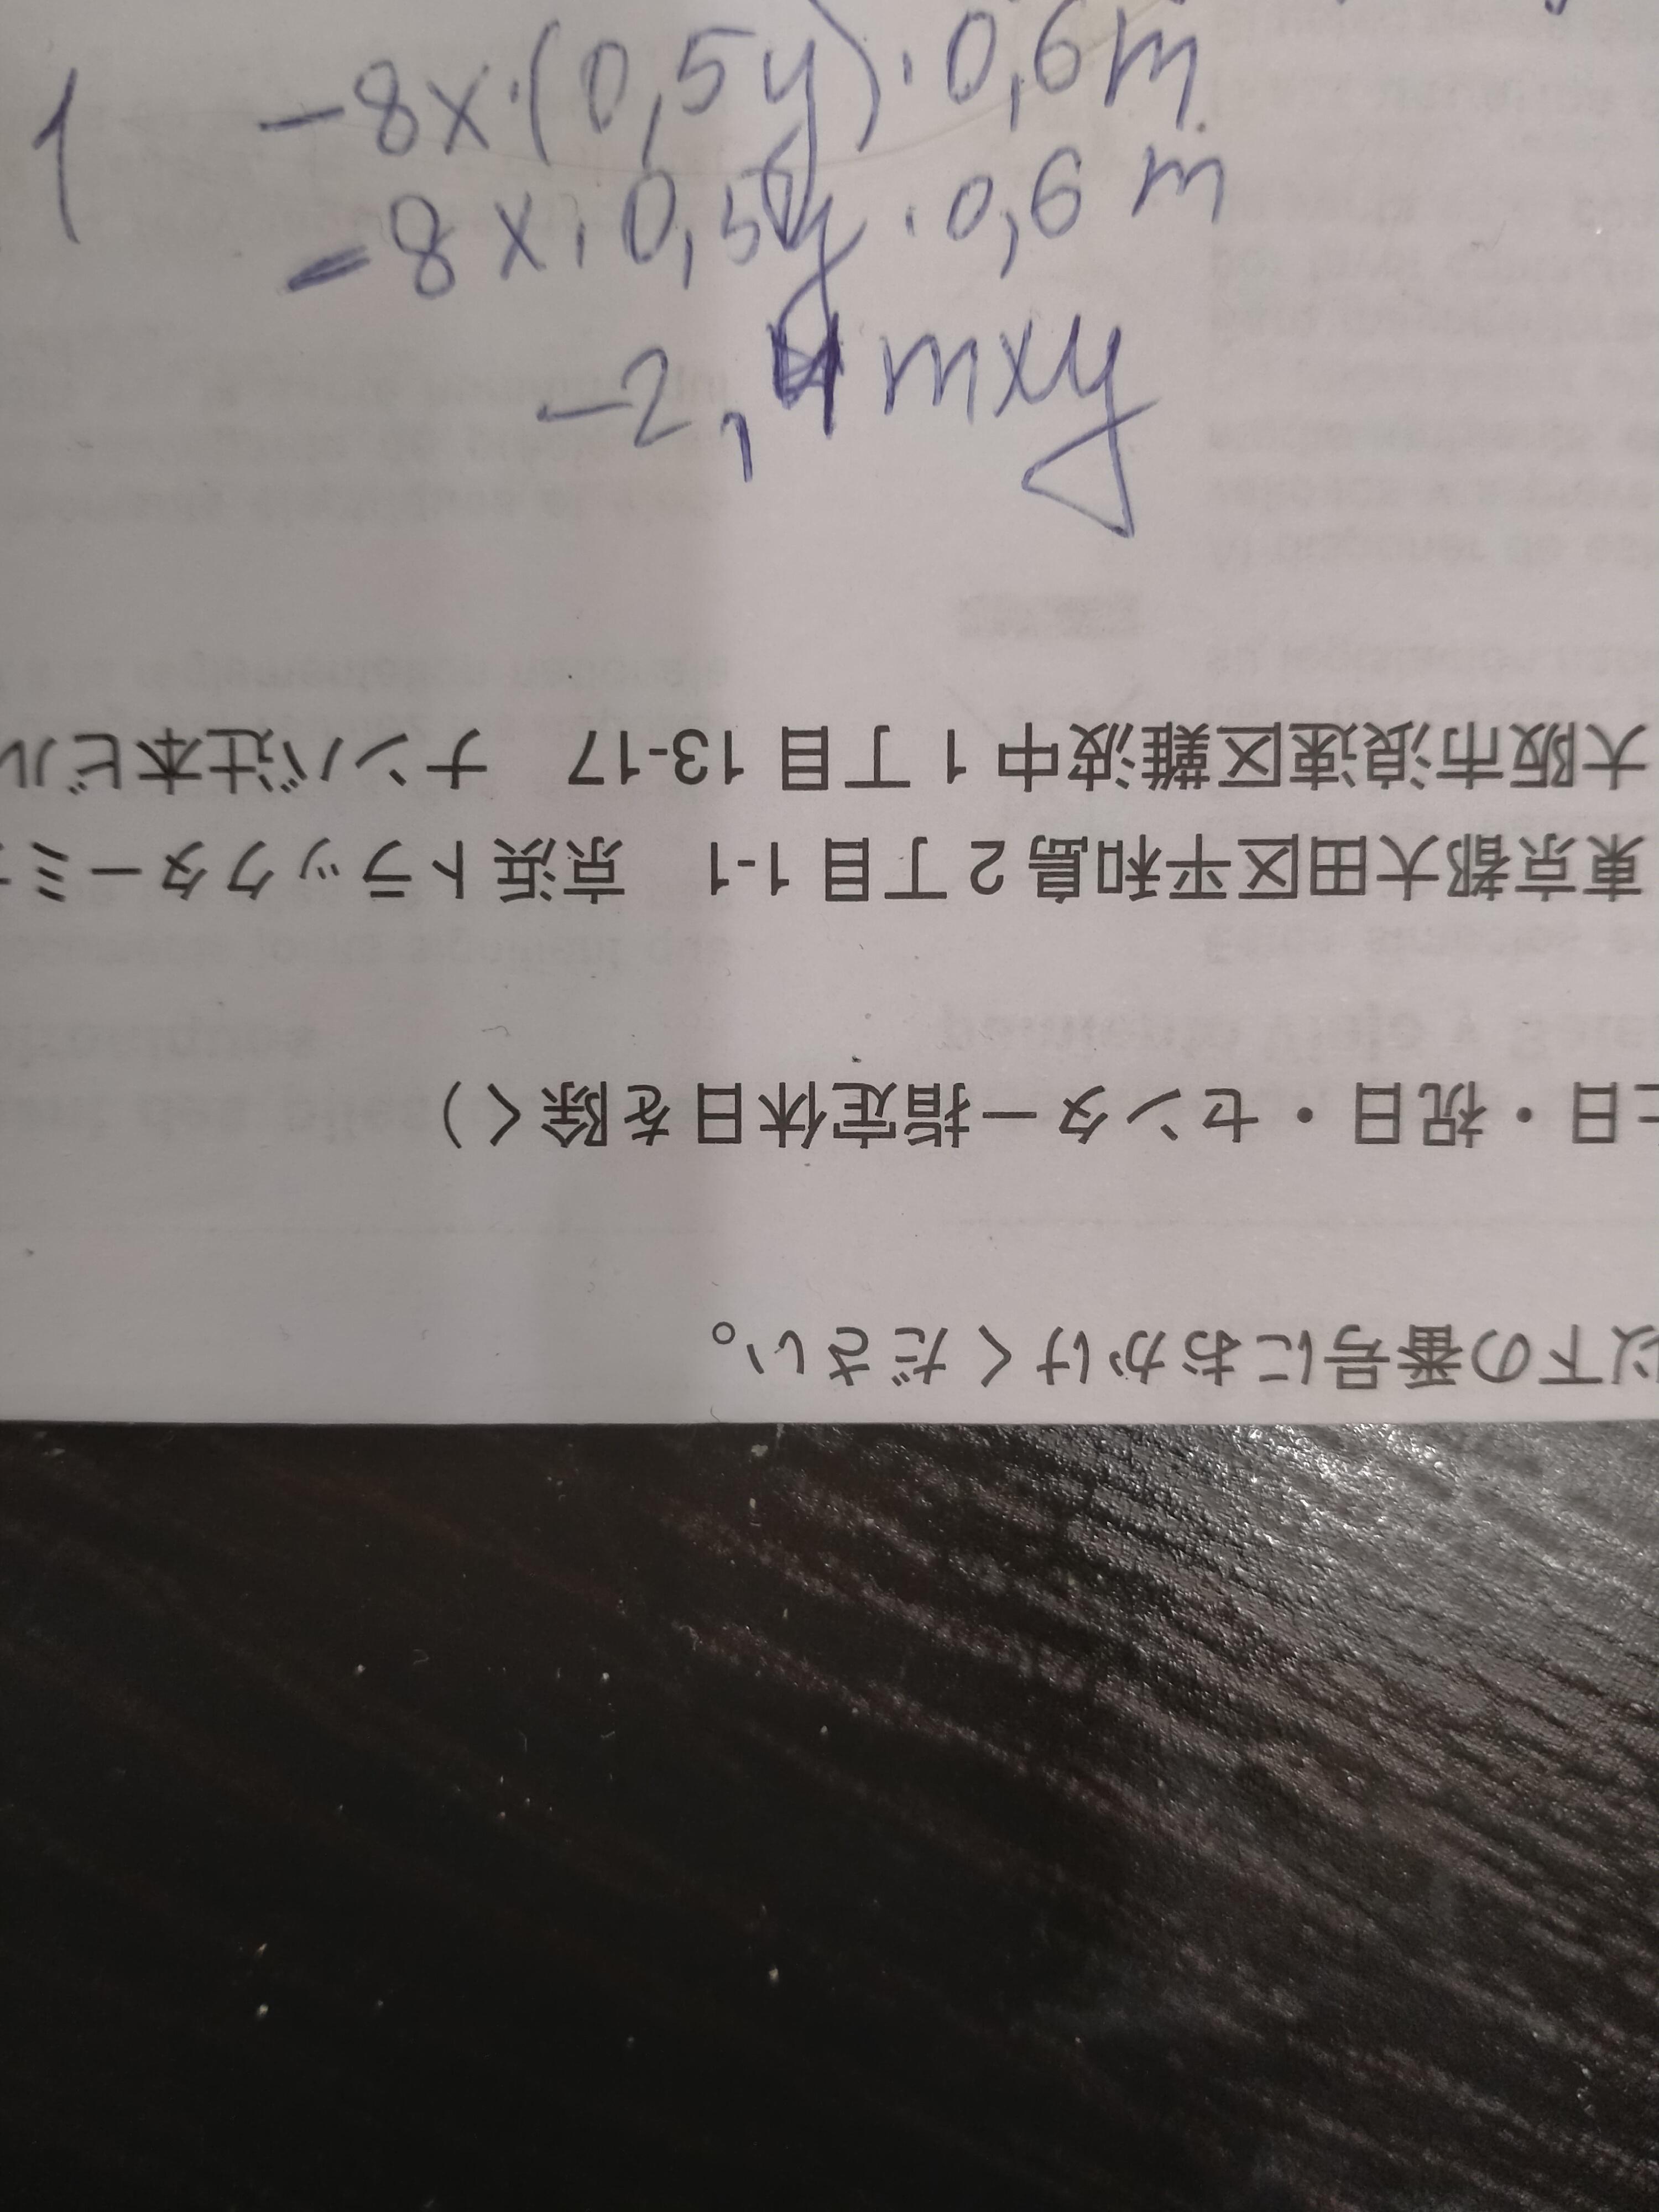 1 -8x·(0,5y)·0,6m
-8x·0,5y·0,6m
-2,4mxy
以下の番号におかけください。
日・祝日・センター指定休日を除く)
東京都大田区平和島2丁目1-1 京浜トラックターミ
大阪市浪速区難波中1丁目13-17 ナンバ辻本ビル